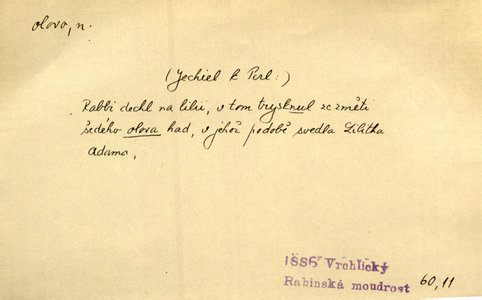 olovo, n.
(Jechiel z Perl:)
Rabbi dechl na lilii, v tom trysknul ze změti
šedého olova had, v jehož podobě svedla Lilitha
Adama,
1886 Vrchlický
Rabínská moudrost 60,11